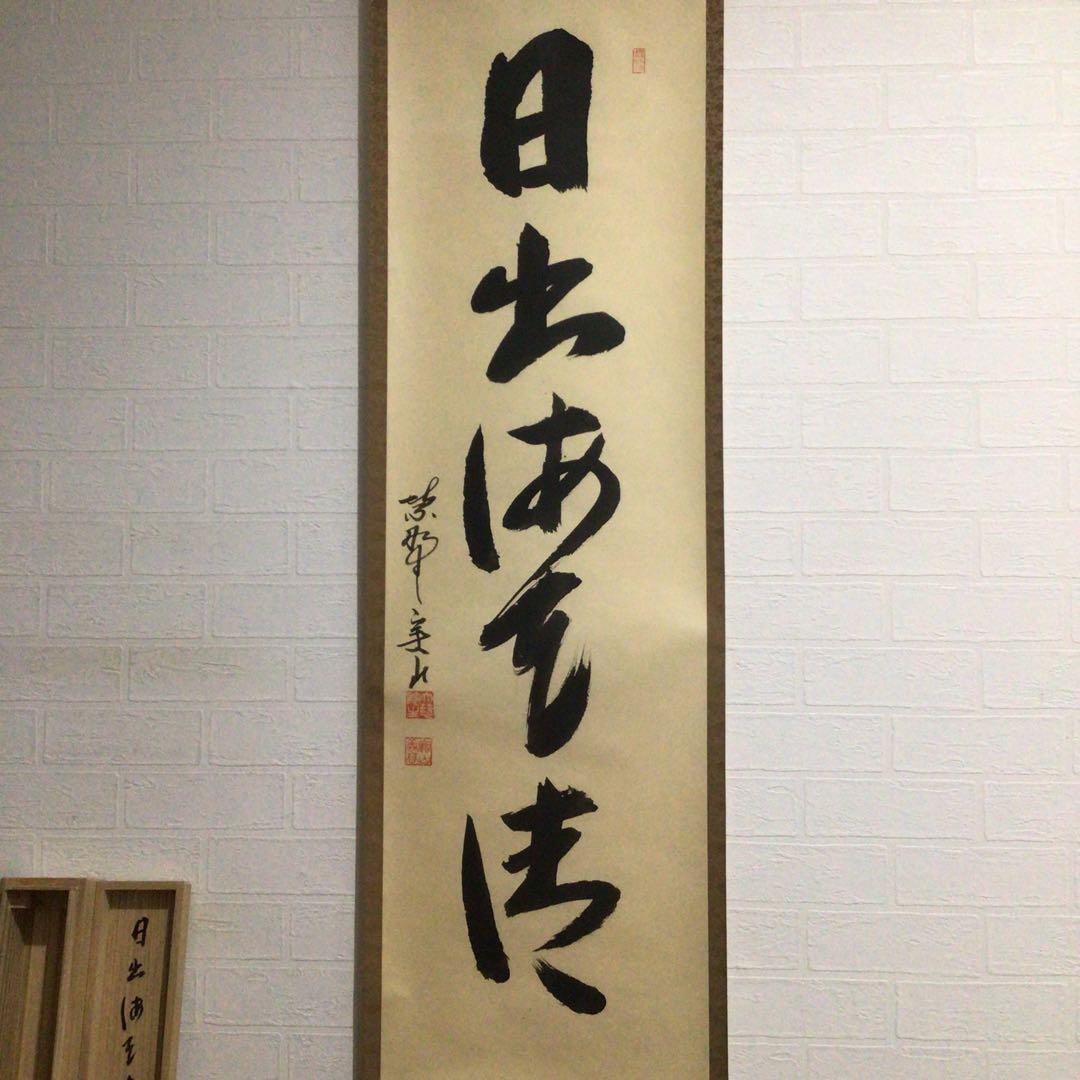 日出海天清
紫野
日出海天